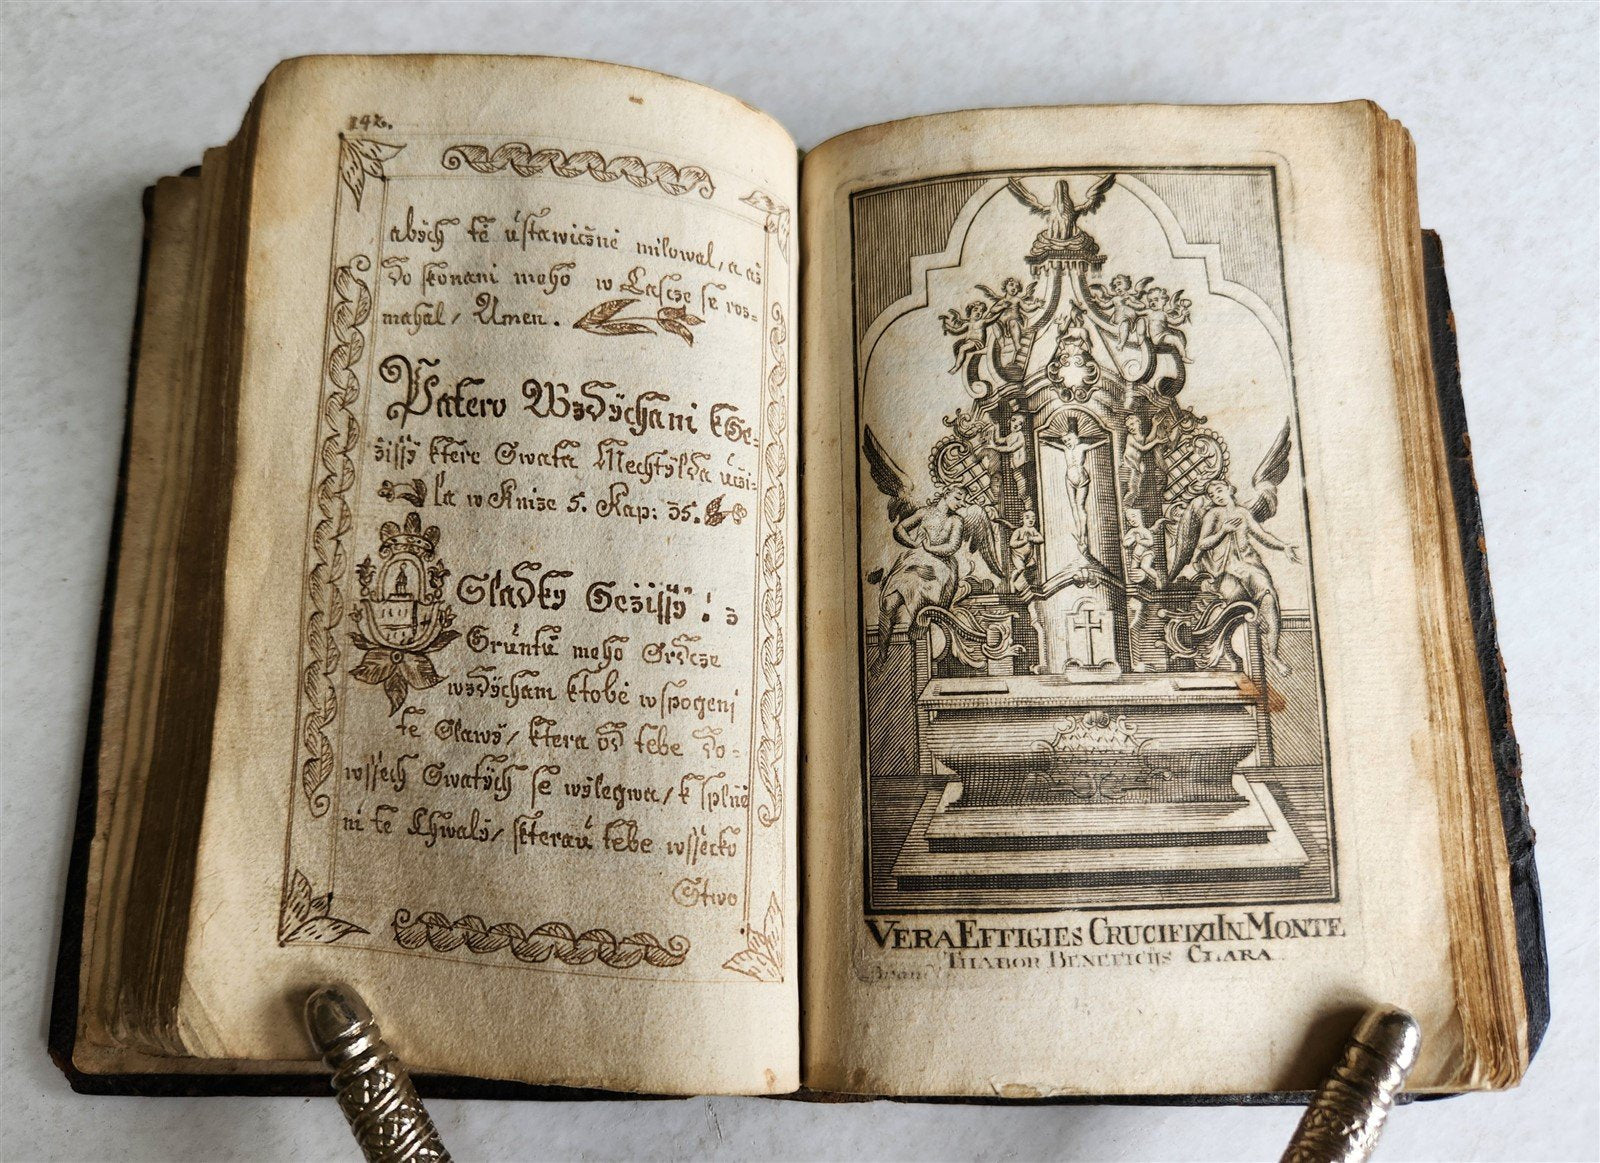 142.
abých tě ústawičně milowal, a až
do skonani meho w Lascze se roz-
mahal, Amen.
Patero Wzdýchani k Ge-
žissy ktere Swata Mechtÿlda uči-
la w Knize 5. Kap: 35.
Sladký Gežissý! z
Gruntu meho Srdcze
wzdýcham ktobě w spogeni
tě Slawý, ktera od tebe do-
wssech Swatých se wýlegwa, k splně
ni tě Chwalý, kterau tebe wssecko
Stwo
VERA EFFIGIES CRUCIFIXI IN MONTE
THABOR BENEFICIJS CLARA